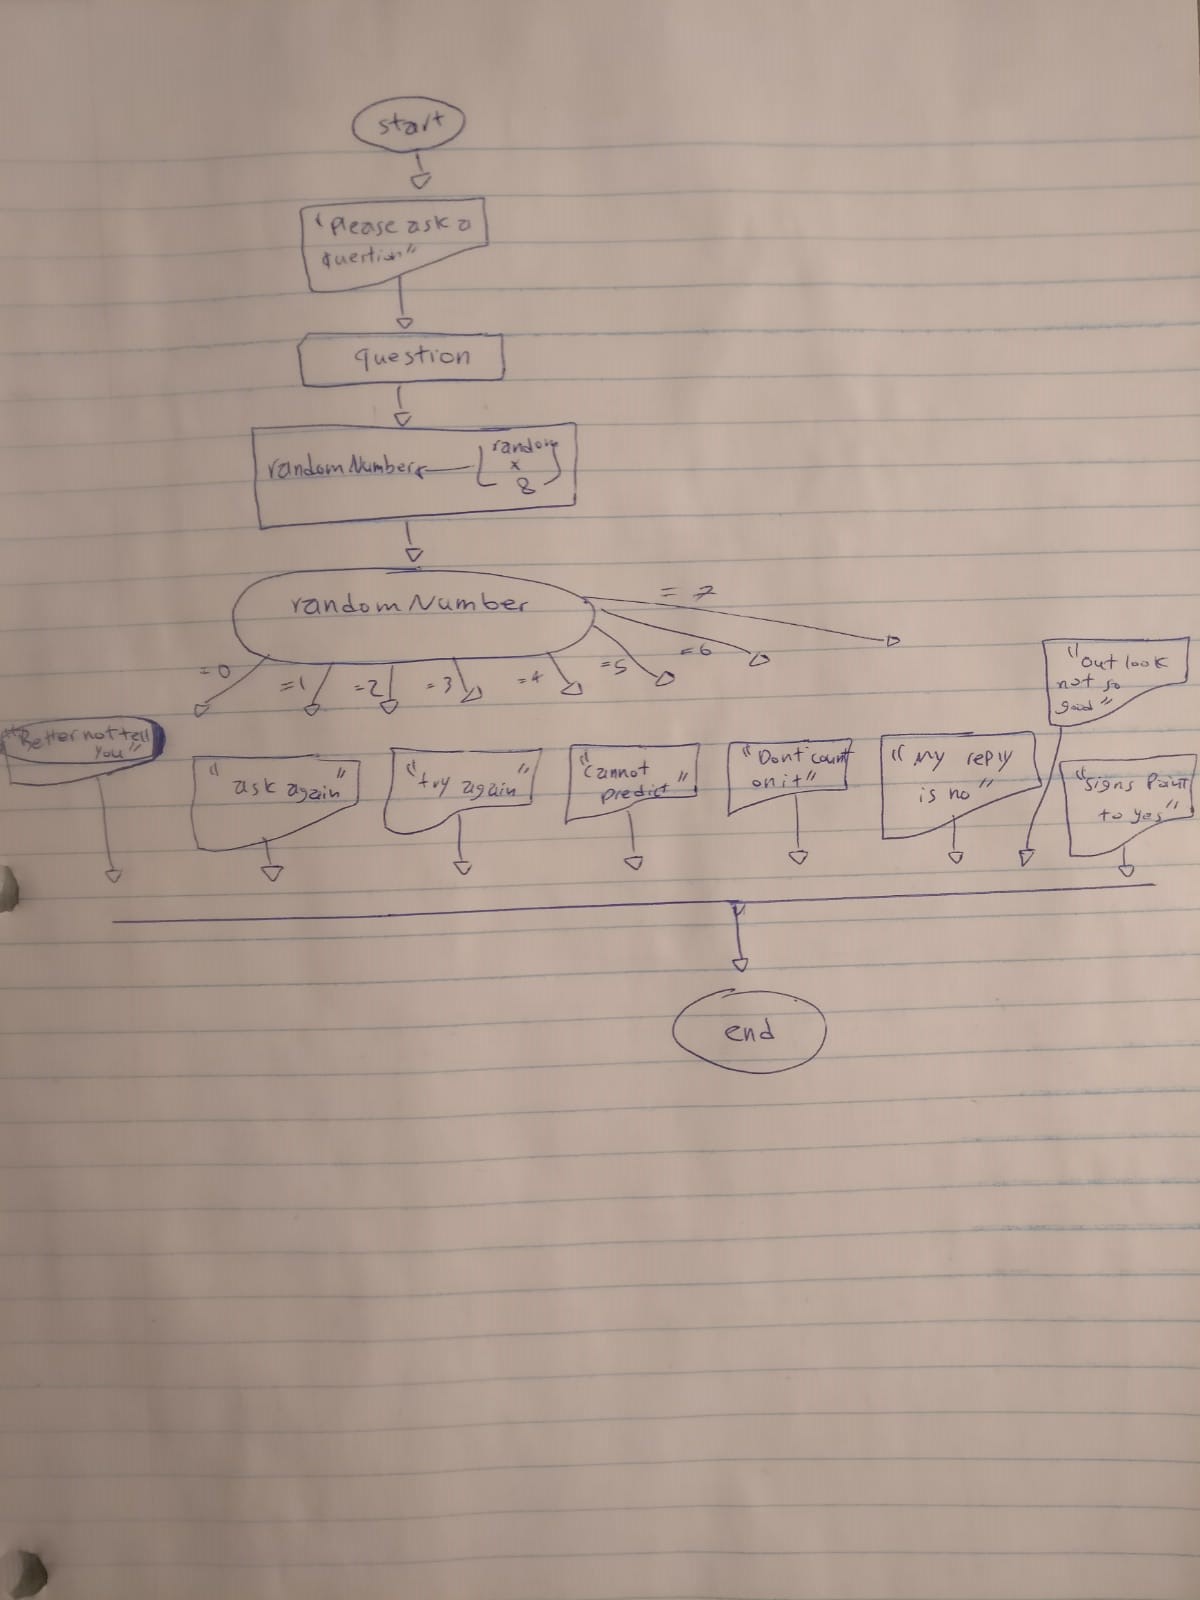 start
"Please ask a
question"
question
randomNumber ← ⌊random
x
8⌋
randomNumber
= 7
=0
=1
=2
=3
=4
=5
=6
"Out look
not so
good"
"Better not tell
you"
"ask again"
"try again"
"Cannot
predict"
"Dont count
on it"
"My reply
is no"
"Signs Point
to yes"
end